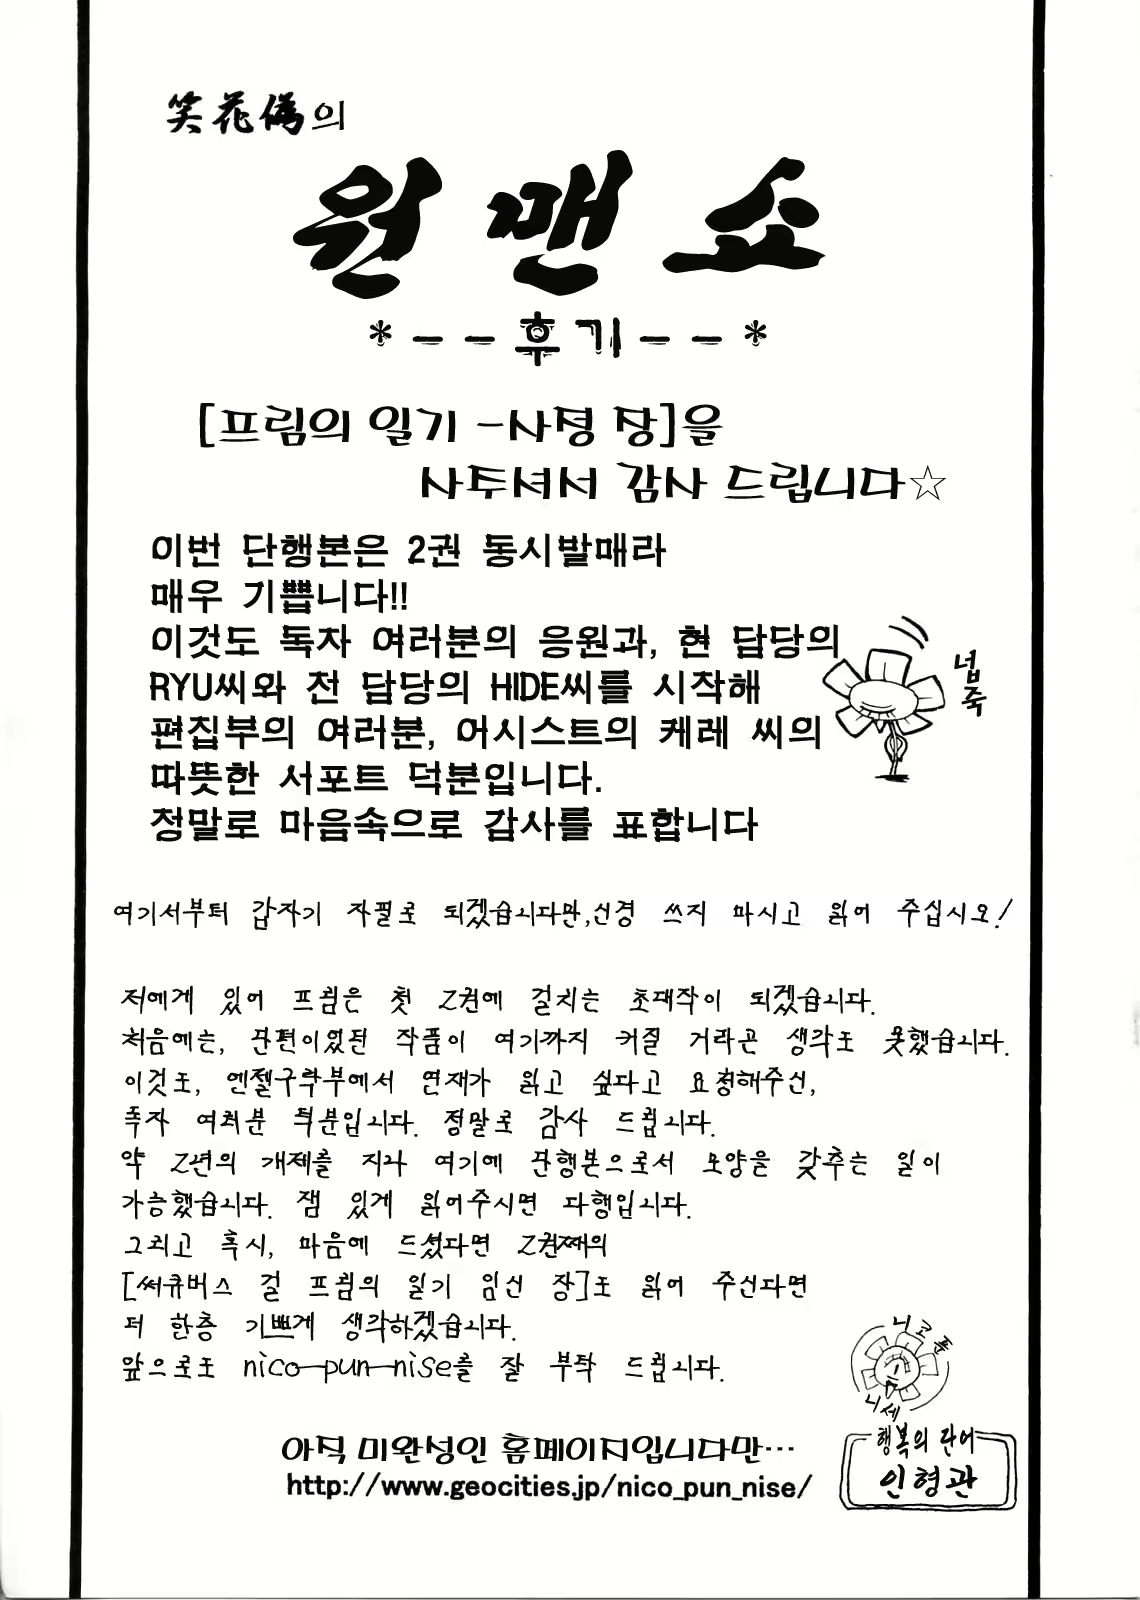 笑花偽의
원맨쇼
*--후기--*
[프림의 일기 -사명 장]을
사두셔서 감사 드립니다☆
이번 단행본은 2권 동시발매라
매우 기쁩니다!!
이것도 독자 여러분의 응원과, 현 담당의
RYU씨와 전 담당의 HIDE씨를 시작해
편집부의 여러분, 어시스트의 케레 씨의
따뜻한 서포트 덕분입니다.
정말로 마음속으로 감사를 표합니다
넙죽
여기서부터 갑자기 자필로 되겠습니다만,신경 쓰지 마시고 읽어 주십시오!
저에게 있어 프림은 첫 2권에 걸치는 초대작이 되겠습니다.
처음에는, 단편이었던 작품이 여기까지 커질 거라곤 생각도 못했습니다.
이것도, 엔젤구락부에서 연재가 읽고 싶다고 요청해주신,
독자 여러분 덕분입니다. 정말로 감사 드립니다.
약 2년의 개제를 지나 여기에 단행본으로서 모양을 갖추는 일이
가능했습니다. 잼 있게 읽어주시면 다행입니다.
그리고 혹시, 마음에 드셨다면 2권째의
[써큐버스 걸 프림의 일기 임신 장]도 읽어 주신다면
더 한층 기쁘게 생각하겠습니다.
앞으로도 nico-pun-nise를 잘 부탁 드립니다.
니코푼
니세
행복의 단어
인형관
아직 미완성인 홈페이지입니다만…
http://www.geocities.jp/nico_pun_nise/